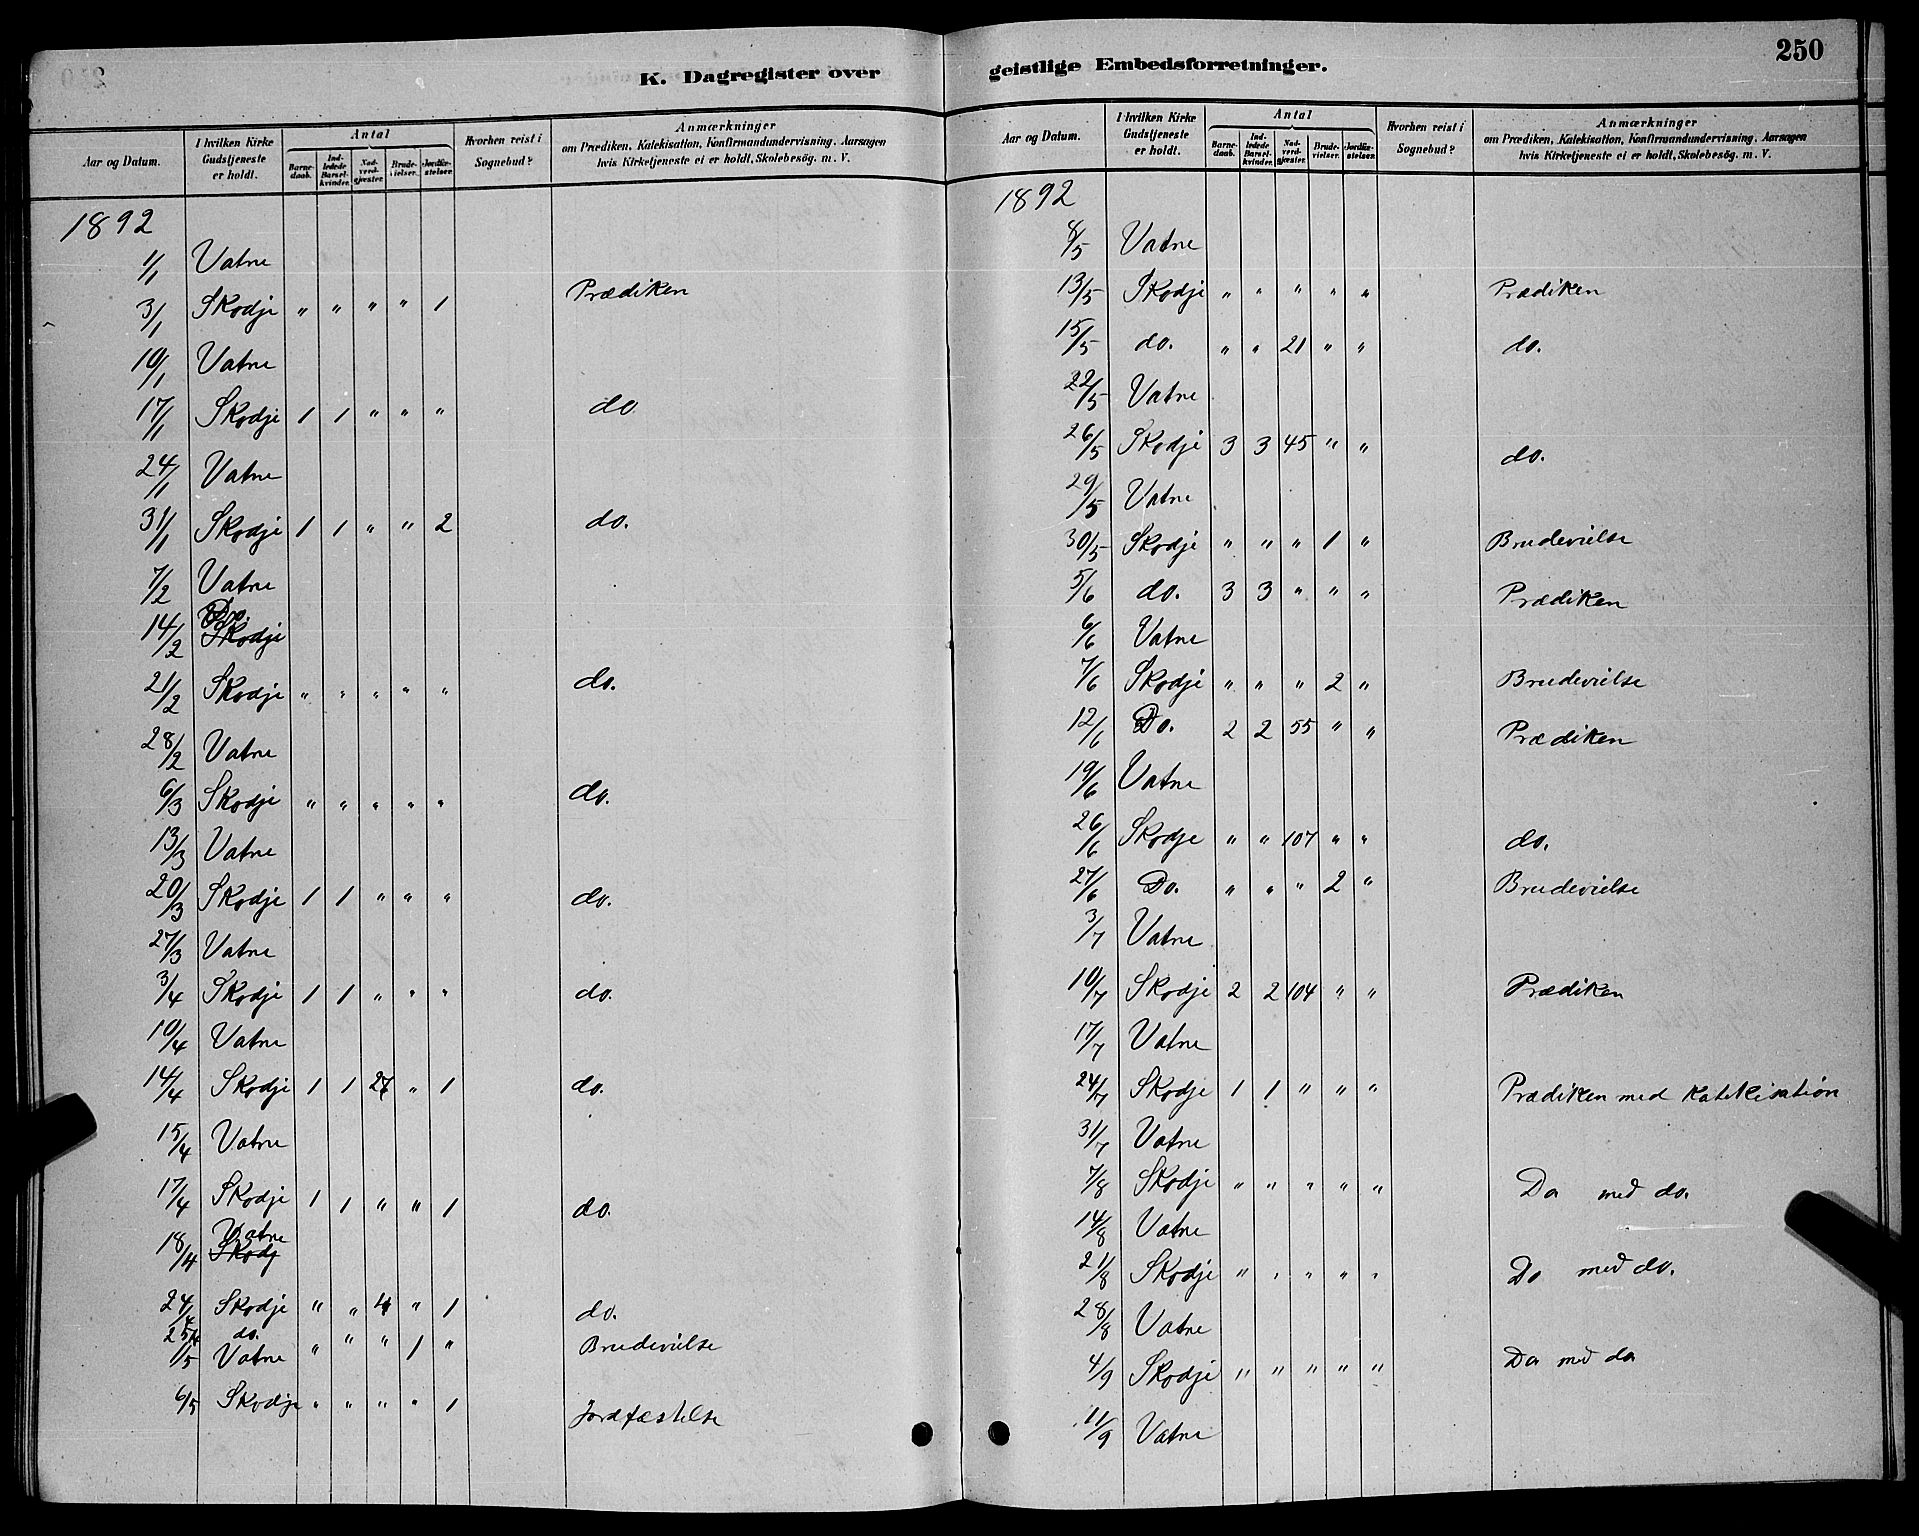 K. Dagregister over
Aar og Datum. | I hvilken Kirke Gudstjeneste er holdt. | Antal | Barnedaab. | Indledede Barselkvinder. | Nadverdgjæster. | Brudevielser. | Jordfæstelser. | Hvorhen reist i Sognebud? | Anmærkninger om Prædiken, Katekisation, Konfirmandundervisning, Aarsagen hvis Kirketjeneste ei er holdt, Skolebesög. m. V.
1892
1/1 Vatne
3/1 Skodje " " " " 1 Prædiken
10/1 Vatne
17/1 Skodje 1 1 " " " do
24/1 Vatne
31/1 Skodje 1 1 " " 2 do.
7/2 Vatne
14/2 Skodje
21/2 Skodje " " " " " do.
28/2 Vatne
6/3 Skodje " " " " " do.
13/3 Vatne
20/3 Skodje 1 1 " " " do.
27/3 Vatne
3/4 Skodje 1 1 " " " do.
10/4 Vatne
14/4 Skodje 1 1 27 " 1 do.
15/4 Vatne
17/4 Skodje 1 1 " " 1 do.
Vatne
18/4 Skodj
24/4 Skodje " " 4 " 1 do.
25/4 do. " " " 1 " Brudevielse
1/5 Vatne
6/5 Skodje " " " " 1 Jordfæstelse
geistlige Embedsforretninger.
250
Aar og Datum. | I hvilken Kirke Gudstjeneste er holdt. | Antal | Barnedaab. | Indledede Barselkvinder. | Nadverdgjæster. | Brudevielser. | Jordfæstelser. | Hvorhen reist i Sognebud? | Anmærkninger om Prædiken, Katekisation, Konfirmandundervisning, Aarsagen hvis Kirketjeneste ei er holdt, Skolebesög. m. V.
1892
8/5 Vatne
13/5 Skodje " " " " " Prædiken
15/5 do. " " 21 " " do.
22/5 Vatne
26/5 Skodje 3 3 45 " " do.
29/5 Vatne
30/5 Skodje " " " 1 " Brudevielse
5/6 do. 3 3 " " " Prædiken
6/6 Vatne
7/6 Skodje " " " 2 " Brudevielse
12/6 Do. 2 2 55 " " Prædiken
19/6 Vatne
26/6 Skodje " " 107 " " do.
27/6 Do. " " " 2 " Brudevielse
3/7 Vatne
10/7 Skodje 2 2 104 " " Prædiken
17/7 Vatne
24/7 Skodje 1 1 " " " Prædiken med Katekisation
31/7 Vatne
7/8 Skodje " " " " " Do med do.
14/8 Vatne
21/8 Skodje " " " " " Do med do.
28/8 Vatne
4/9 Skodje " " " " " Do med do
11/9 Vatne